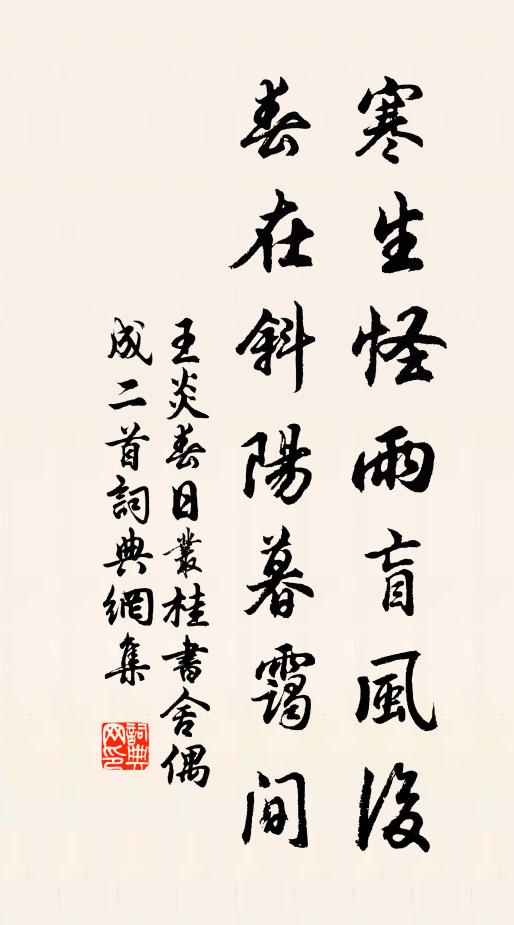 寒生怪雨盲風後
春在斜陽暮靄間
王炎春日叢桂書舍偶
成二首詞典網集
詞典
网印